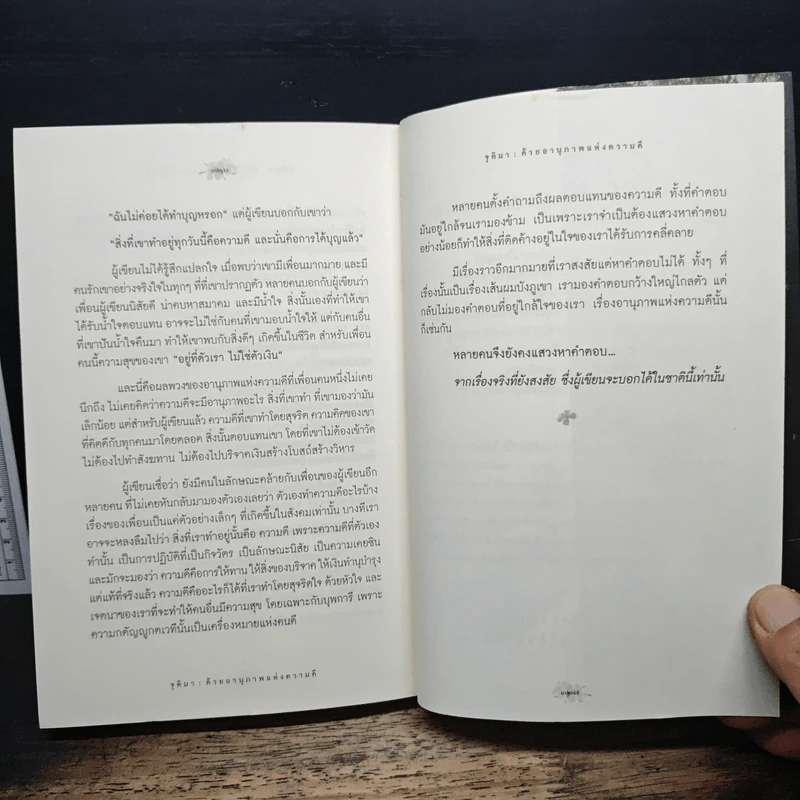 "ฉันไม่ค่อยได้ทำบุญหรอก" แต่ผู้เขียนบอกกับเขาว่า
"สิ่งที่เขาทำอยู่ทุกวันนี้คือความดี และนั่นคือการได้บุญแล้ว"
ผู้เขียนไม่ได้รู้สึกแปลกใจ เมื่อพบว่าเขามีเพื่อนมากมาย และมี
คนรักเขาอย่างจริงใจในทุกๆ ที่ที่เขาปรากฏตัว หลายคนบอกกับผู้เขียนว่า
เพื่อนผู้เขียนนิสัยดี น่าคบหาสมาคม และมีน้ำใจ สิ่งนั้นเองที่ทำให้เขา
ได้รับน้ำใจตอบแทน อาจจะไม่ใช่กับคนที่เขามอบน้ำใจให้ แต่กับคนอื่น
ที่เขาปันน้ำใจคืนมา ทำให้เขาพบกับสิ่งดีๆ เกิดขึ้นในชีวิต สำหรับเพื่อน
คนนี้ความสุขของเขา "อยู่ที่ตัวเรา ไม่ใช่ตัวเงิน"
และนี่คือผลพวงของอานุภาพแห่งความดีที่เพื่อนคนหนึ่งไม่เคย
นึกถึง ไม่เคยคิดว่าความดีจะมีอานุภาพอะไร สิ่งที่เขาทำ ที่เขามองว่ามัน
เล็กน้อย แต่สำหรับผู้เขียนแล้ว ความดีที่เขาทำโดยสุจริต ความคิดของเขา
ที่คิดดีกับทุกคนมาโดยตลอด สิ่งนั้นตอบแทนเขา โดยที่เขาไม่ต้องเข้าวัด
ไม่ต้องไปทำสังฆทาน ไม่ต้องไปบริจาคเงินสร้างโบสถ์สร้างวิหาร
ผู้เขียนเชื่อว่า ยังมีคนในลักษณะคล้ายกับเพื่อนของผู้เขียนอีก
หลายคน ที่ไม่เคยหันกลับมามองตัวเองเลยว่า ตัวเองทำความดีอะไรบ้าง
เรื่องของเพื่อนเป็นแค่ตัวอย่างเล็กๆ ที่เกิดขึ้นในสังคมเท่านั้น บางทีเรา
อาจจะหลงลืมไปว่า สิ่งที่เราทำอยู่นั้นคือ ความดี เพราะความดีที่ตัวเอง
ทำนั้น เป็นการปฏิบัติที่เป็นกิจวัตร เป็นลักษณะนิสัย เป็นความเคยชิน
และมักจะมองว่า ความดีคือการให้ทาน ให้สิ่งของบริจาค ให้เงินทำนุบำรุง
แต่แท้ที่จริงแล้ว ความดีคืออะไรก็ได้ที่เราทำโดยสุจริตใจ ด้วยหัวใจ และ
เจตนาของเราที่จะทำให้คนอื่นมีความสุข โดยเฉพาะกับบุพการี เพราะ
ความกตัญญูกตเวทีนั้นเป็นเครื่องหมายแห่งคนดี
รุติมา : ด้วยอานุภาพแห่งความดี
รุติมา : ด้วยอานุภาพแห่งความดี
หลายคนตั้งคำถามถึงผลตอบแทนของความดี ทั้งที่คำตอบ
มันอยู่ใกล้จนเรามองข้าม เป็นเพราะเราจำเป็นต้องแสวงหาคำตอบ
อย่างน้อยก็ทำให้สิ่งที่ติดค้างอยู่ในใจของเราได้รับการคลี่คลาย
มีเรื่องราวอีกมากมายที่เราสงสัยแต่หาคำตอบไม่ได้ ทั้งๆ ที่
เรื่องนั้นเป็นเรื่องเส้นผมบังภูเขา เรามองคำตอบกว้างใหญ่ไกลตัว แต่
กลับไม่มองคำตอบที่อยู่ใกล้ใจของเรา เรื่องอานุภาพแห่งความดีนั้น
ก็เช่นกัน
หลายคนจึงยังคงแสวงหาคำตอบ...
จากเรื่องจริงที่ยังสงสัย ซึ่งผู้เขียนจะบอกได้ในชาตินี้เท่านั้น